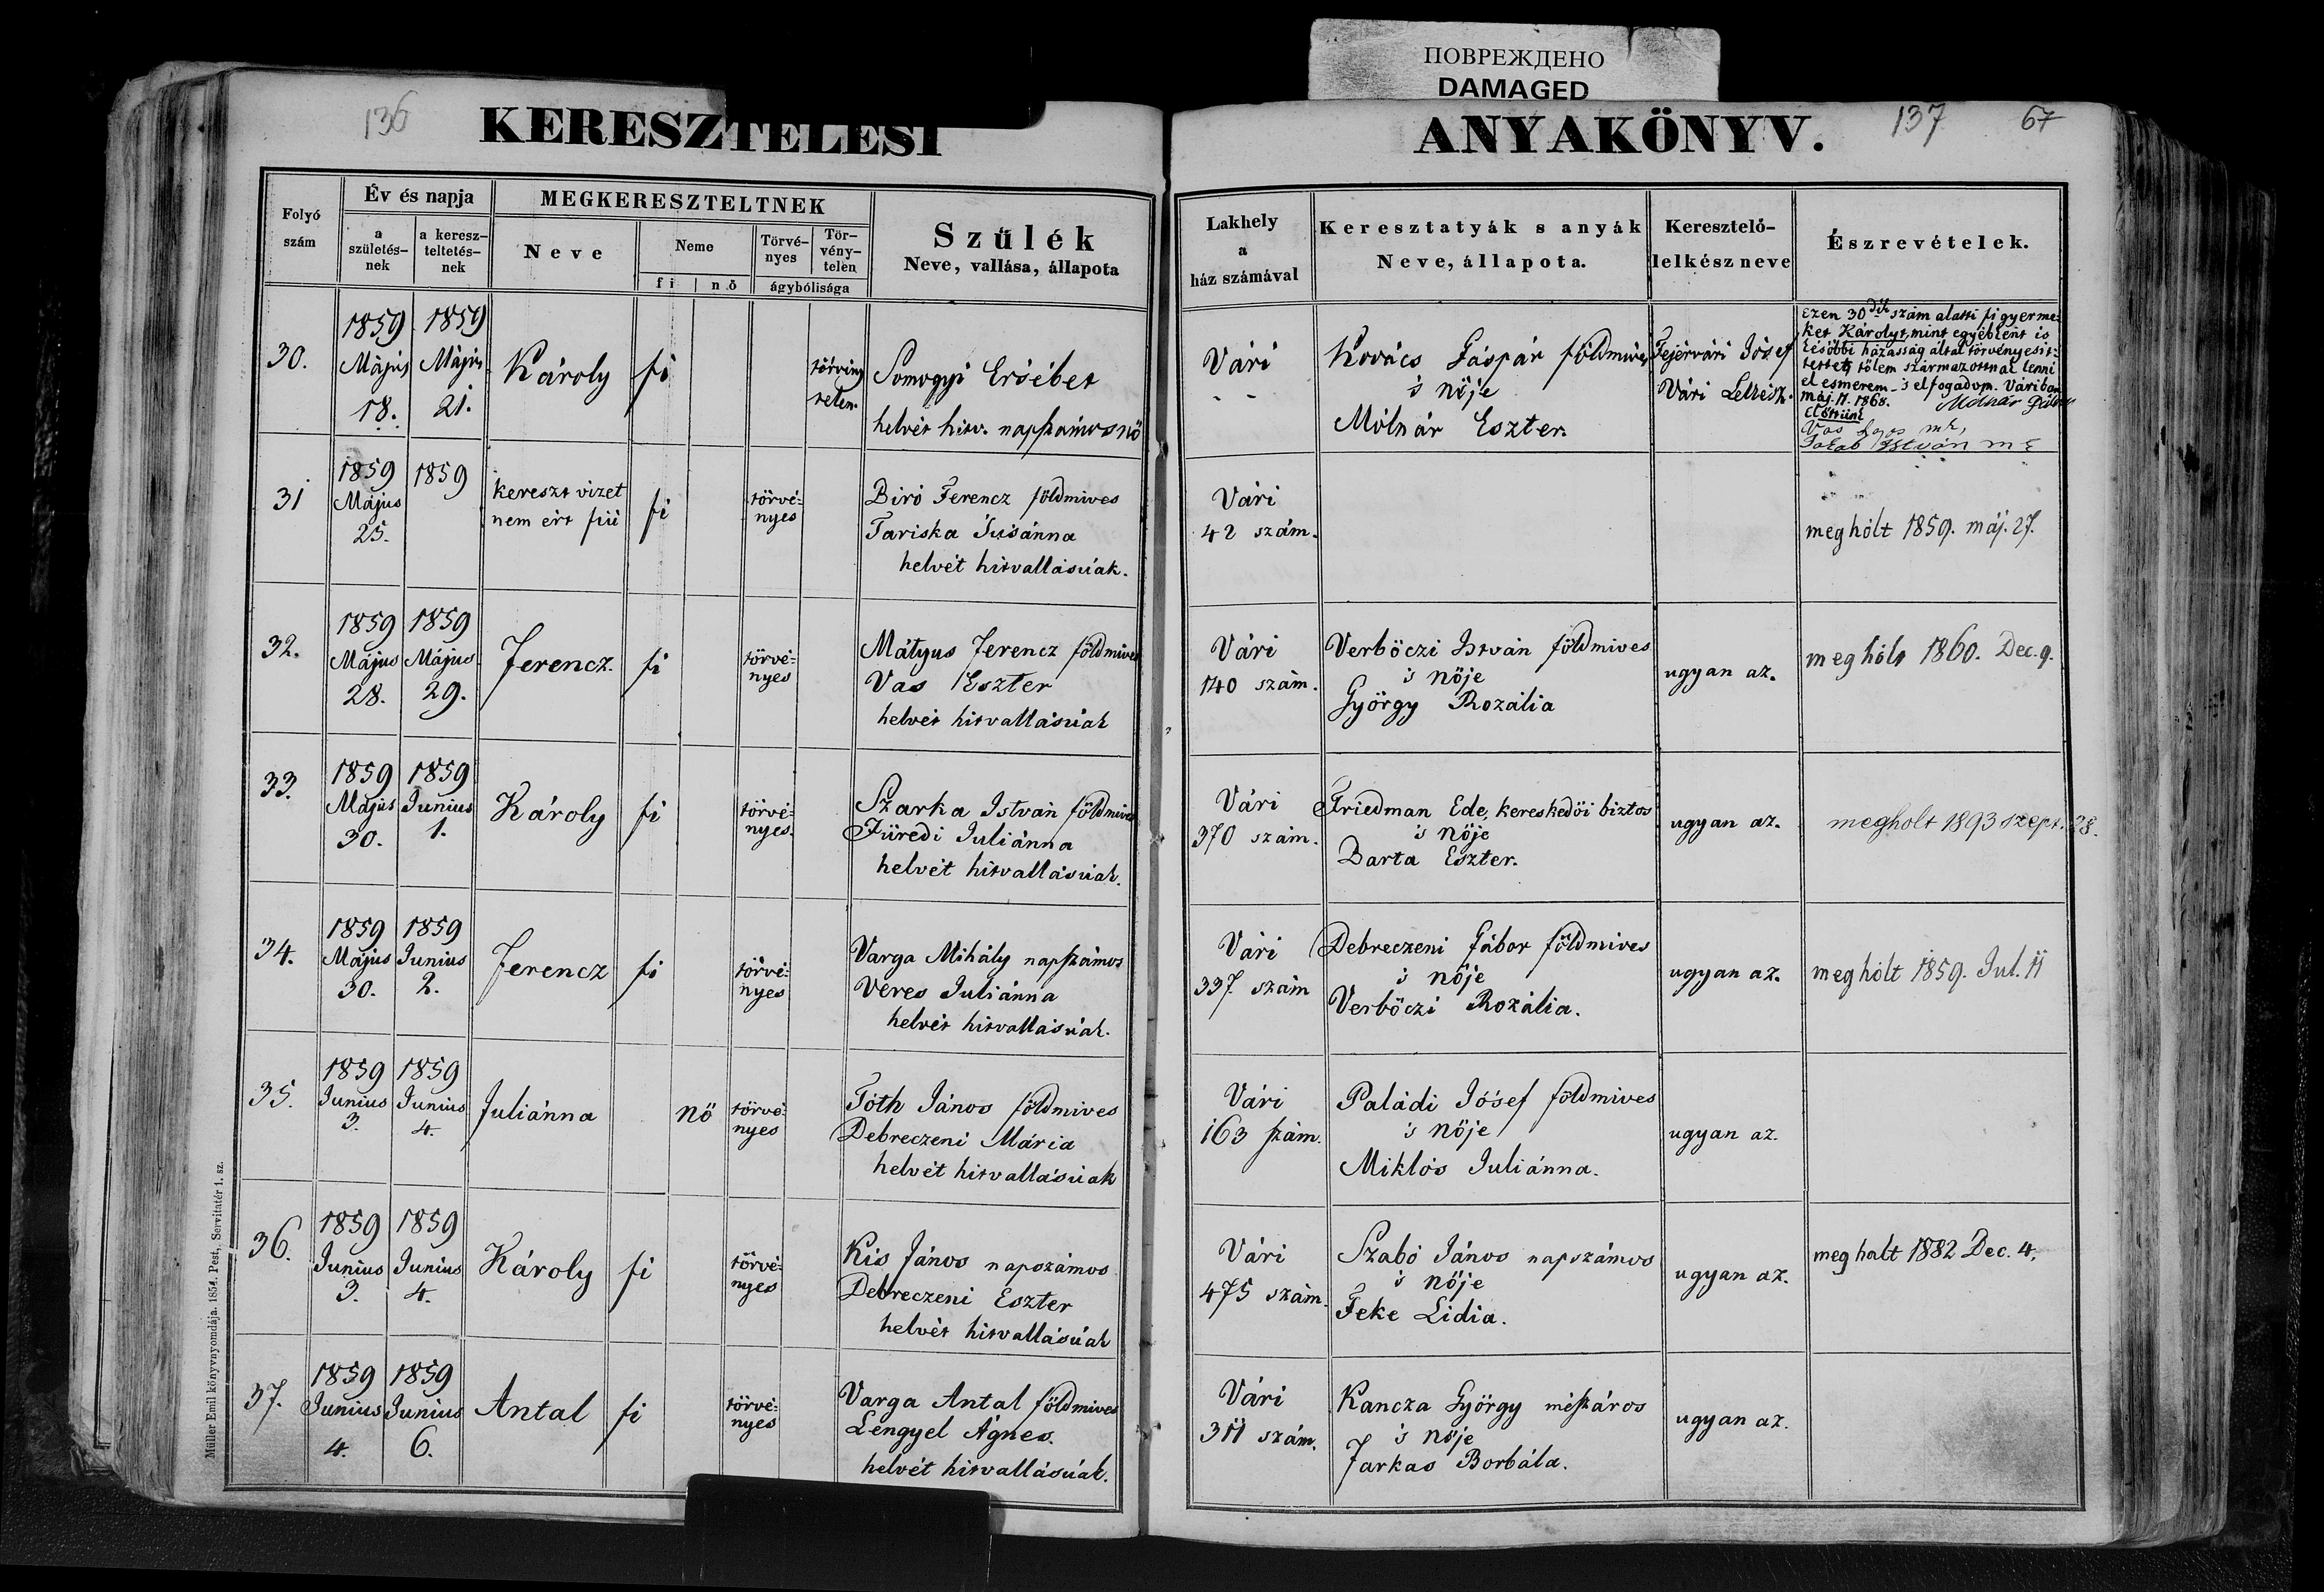 ПОВРЕЖДЕНО
DAMAGED
136
KERESZTELÉSI
ANYAKÖNYV.
137
67
Folyó szám
Év és napja
a születés-nek
a keresz-teltetés-nek
MEGKERESZTELTNEK
Neve
Neme
fi
nő
Törvé-nyes
Tör-vény-telen
ágybólisága
Szülék
Neve, vallása, állapota
Lakhely a ház számával
Keresztatyák s anyák
Neve, állapota.
Keresztelő-lelkész neve
Észrevételek.
30.
1859 Május 18.
1859 Május 21.
Károly
fi
törvény telen.
Somogyi Ersébet
helvét hitv. napszámosnő
Vári
- -
Kovács Gáspár földmives
's nője
Mólnár Eszter.
Fejérvári Jósef
Vári Lelkész.
Ezen 30dik szám alatti fi gyerme-
ket Károlyt, mint egyébként is
későbbi házasság által törvényesit-
tettet, tőlem származottnak lenni
el esmerem 's elfogadom. Váriban
máj. 17. 1868.
Előttünk
Vas Lajos mk,
István mk
31
1859 Május 25.
1859
kereszt vizet
nem ért fiú
fi
törvé-nyes
Biró Ferencz földmives
Tariska Susánna
helvét hitvallásúak.
Vári
42 szám.
meghólt 1859. máj. 27.
32.
1859 Május 28.
1859 Május 29.
Ferencz.
fi
törvé-nyes
Mátyus Ferencz földmives
Vas Eszter
helvét hitvallásúak
Vári
140 szám.
Verbőczi István földmives
's nője
György Rozália
ugyan az.
meghólt 1860. Dec. 9.
33.
1859 Május 30.
1859 Junius 1.
Károly
fi
törvé-nyes.
Szarka István földmives
Füredi Juliánna
helvét hitvallásúak.
Vári
370 szám.
Friedman Ede, kereskedői biztos
's nője
Darta Eszter.
ugyan az.
megholt 1893 szept. 28.
34.
1859 Május 30.
1859 Junius 2.
Ferencz
fi
törvé-nyes
Varga Mihály napszámos
Veres Juliánna
helvét hitvallásúak.
Vári
337. szám
Debreczeni Gábor földmives
's nője
Verbőczi Rozália.
ugyan az.
meghólt 1859. Jul. 11
35.
1859 Junius 3.
1859 Junius 4.
Juliánna
nő
törvé-nyes
Tóth János földmives
Debreczeni Mária
helvét hitvallásúak
Vári
163 szám.
Paládi Jósef földmives
's nője
Miklós Juliánna.
ugyan az.
36.
1859 Junius 3.
1859 Junius 4.
Károly
fi
törvé-nyes
Kis János napszámos
Debreczeni Eszter
helvét hitvallásúak
Vári
475 szám.
Szabó János napszámos
's nője
Feke Lidia.
ugyan az.
meghalt 1882 Dec. 4.
37.
1859 Junius 4.
1859 Junius 6.
Antal
fi
törvé-nyes
Varga Antal földmives
Lengyel Ágnes.
helvét hitvallásúak.
Vári
311 szám.
Kancza György mészáros
's nője
Farkas Borbála.
ugyan az.
Müller Emil könyvnyomdája. 1854. Pest, Servitatér 1. sz.